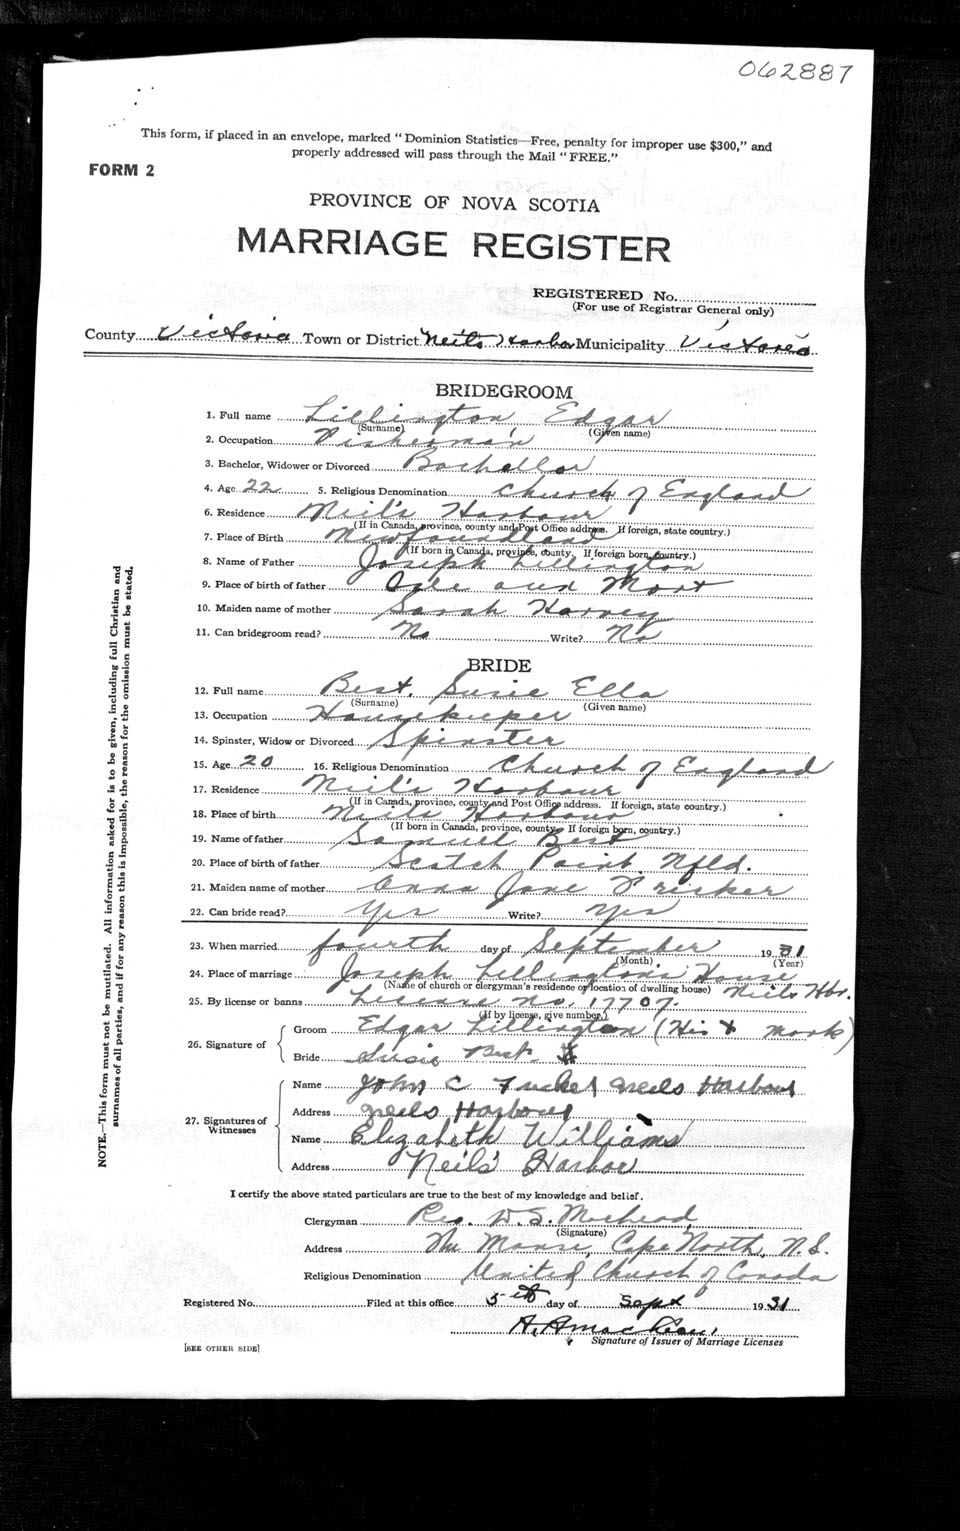 062887
This form, if placed in an envelope, marked "Dominion Statistics—Free, penalty for improper use $300," and
properly addressed will pass through the Mail "FREE."
FORM 2
PROVINCE OF NOVA SCOTIA
MARRIAGE REGISTER
REGISTERED No.
(For use of Registrar General only)
County Victoria Town or District Neil's Harbor Municipality Victoria
BRIDEGROOM
1. Full name Lillington, Edgar
(Surname) (Given name)
2. Occupation Fisherman
3. Bachelor, Widower or Divorced Bachellor
4. Age 22 5. Religious Denomination Church of England
6. Residence Neil's Harbour
(If in Canada, province, county and Post Office address. If foreign, state country.)
7. Place of Birth Newfoundland
(If born in Canada, province, county. If foreign born, country.)
8. Name of Father Joseph Lillington
9. Place of birth of father
10. Maiden name of mother Sarah Harvey
11. Can bridegroom read? No Write? No
BRIDE
12. Full name Best. Susie Ella
(Surname) (Given name)
13. Occupation Housekeeper
14. Spinster, Widow or Divorced Spinster
15. Age 20 16. Religious Denomination Church of England
17. Residence Neil's Harbour
(If in Canada, province, county and Post Office address. If foreign, state country.)
18. Place of birth Neils Harbour
(If born in Canada, province, county. If foreign born, country.)
19. Name of father Samuel Best
20. Place of birth of father Scatch Point. Nfld.
21. Maiden name of mother Anna Jane
22. Can bride read? Yes Write? Yes
23. When married fourth day of September 1931
(Month) (Year)
24. Place of marriage Joseph Lillington's House
(Name of church or clergyman's residence or location of dwelling house) Neils Hbr.
25. By license or banns License No. 17707.
(If by license, give number.)
26. Signature of
Groom Edgar Lillington (His X mark)
Bride Susie Best
27. Signatures of
Witnesses
Name John C Neils Harbour
Address Neils Harbour
Name Elizabeth Williams
Address Neils' Harbor
I certify the above stated particulars are true to the best of my knowledge and belief.
Clergyman Rev. W. S.
(Signature)
Address The Manse, Cape North, N.S.
Religious Denomination United Church of Canada
Registered No. Filed at this office 5th day of Sept 1931
Signature of Issuer of Marriage Licenses
[SEE OTHER SIDE]
NOTE.—This form must not be mutilated. All information asked for is to be given, including full Christian and
surnames of all parties, and if for any reason this is impossible, the reason for the omission must be stated.